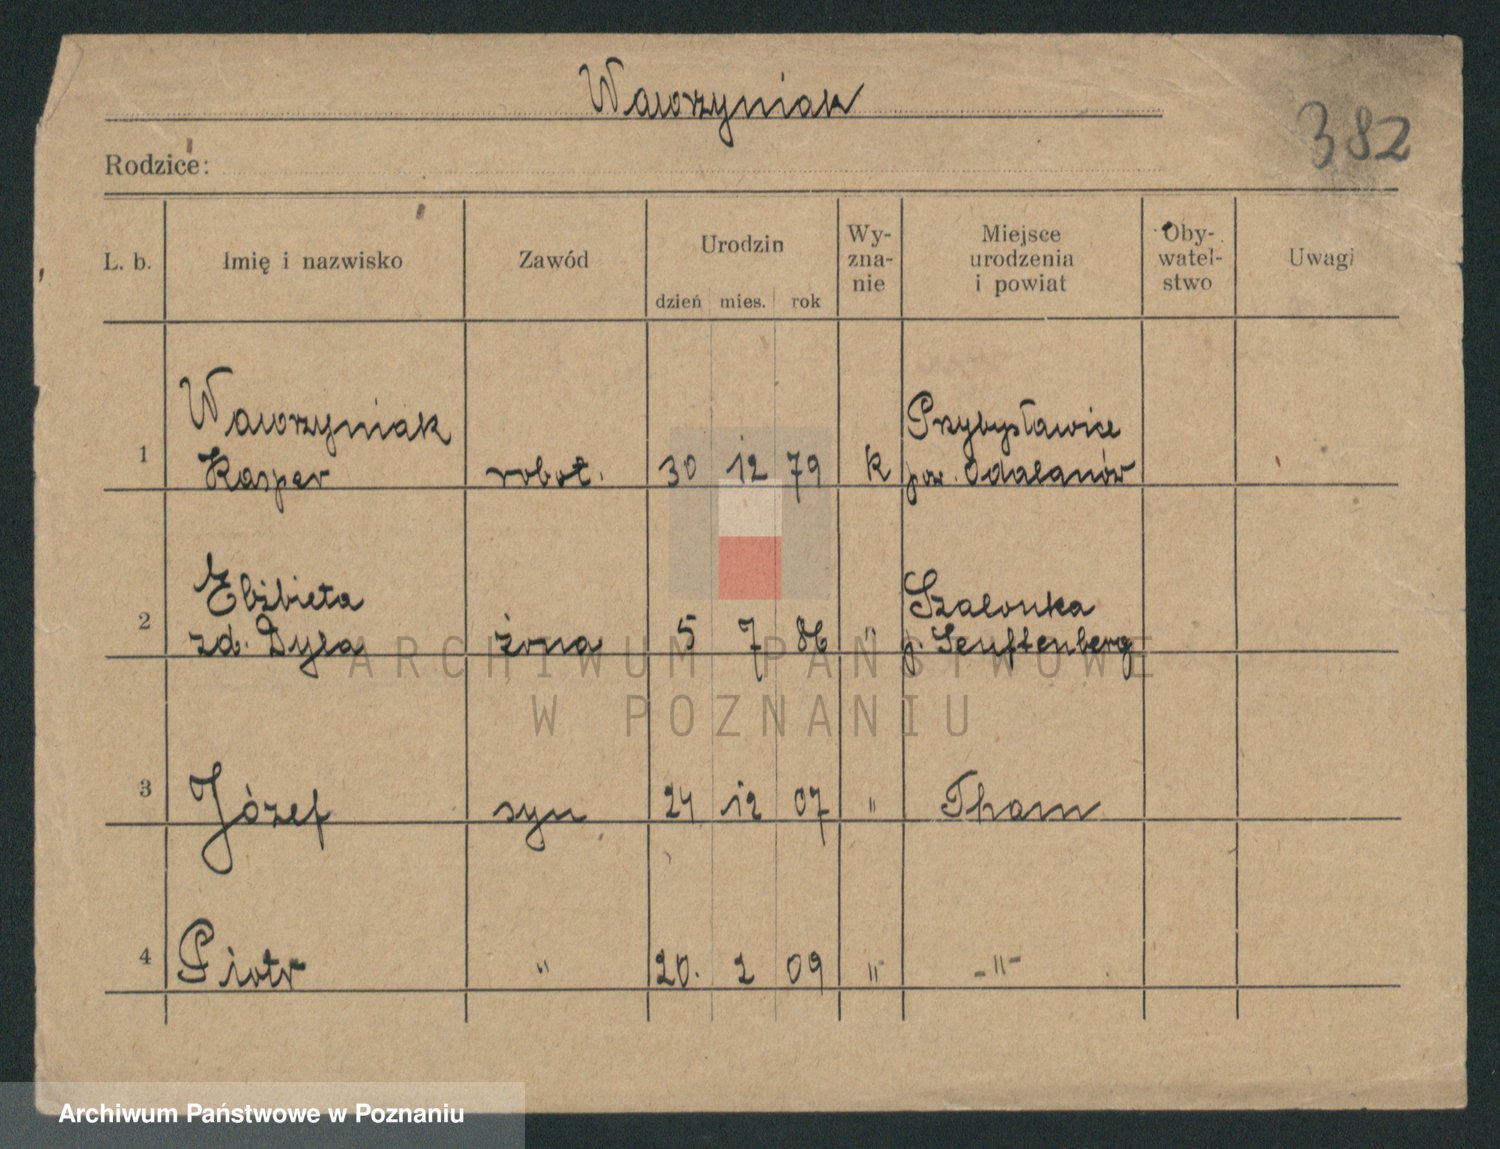 Wawrzyniak
382
Rodzice:
L. b. Imię i nazwisko Zawód Urodzin dzień mies. rok Wy-zna-nie Miejsce urodzenia i powiat Oby-watel-stwo Uwagi
Wawrzyniak Przybysławice
1 Kasper robot. 30 12 79 k pow. Odalanów
Elżbieta Szalonka
2 zd. Dyla żona 5 7 86 " p. Senftenberg
3 Józef syn 24 12 07 " Tham
4 Piotr " 20. 2 09 " -"-
ARCHIWUM PAŃSTWOWE
W POZNANIU
Archiwum Państwowe w Poznaniu